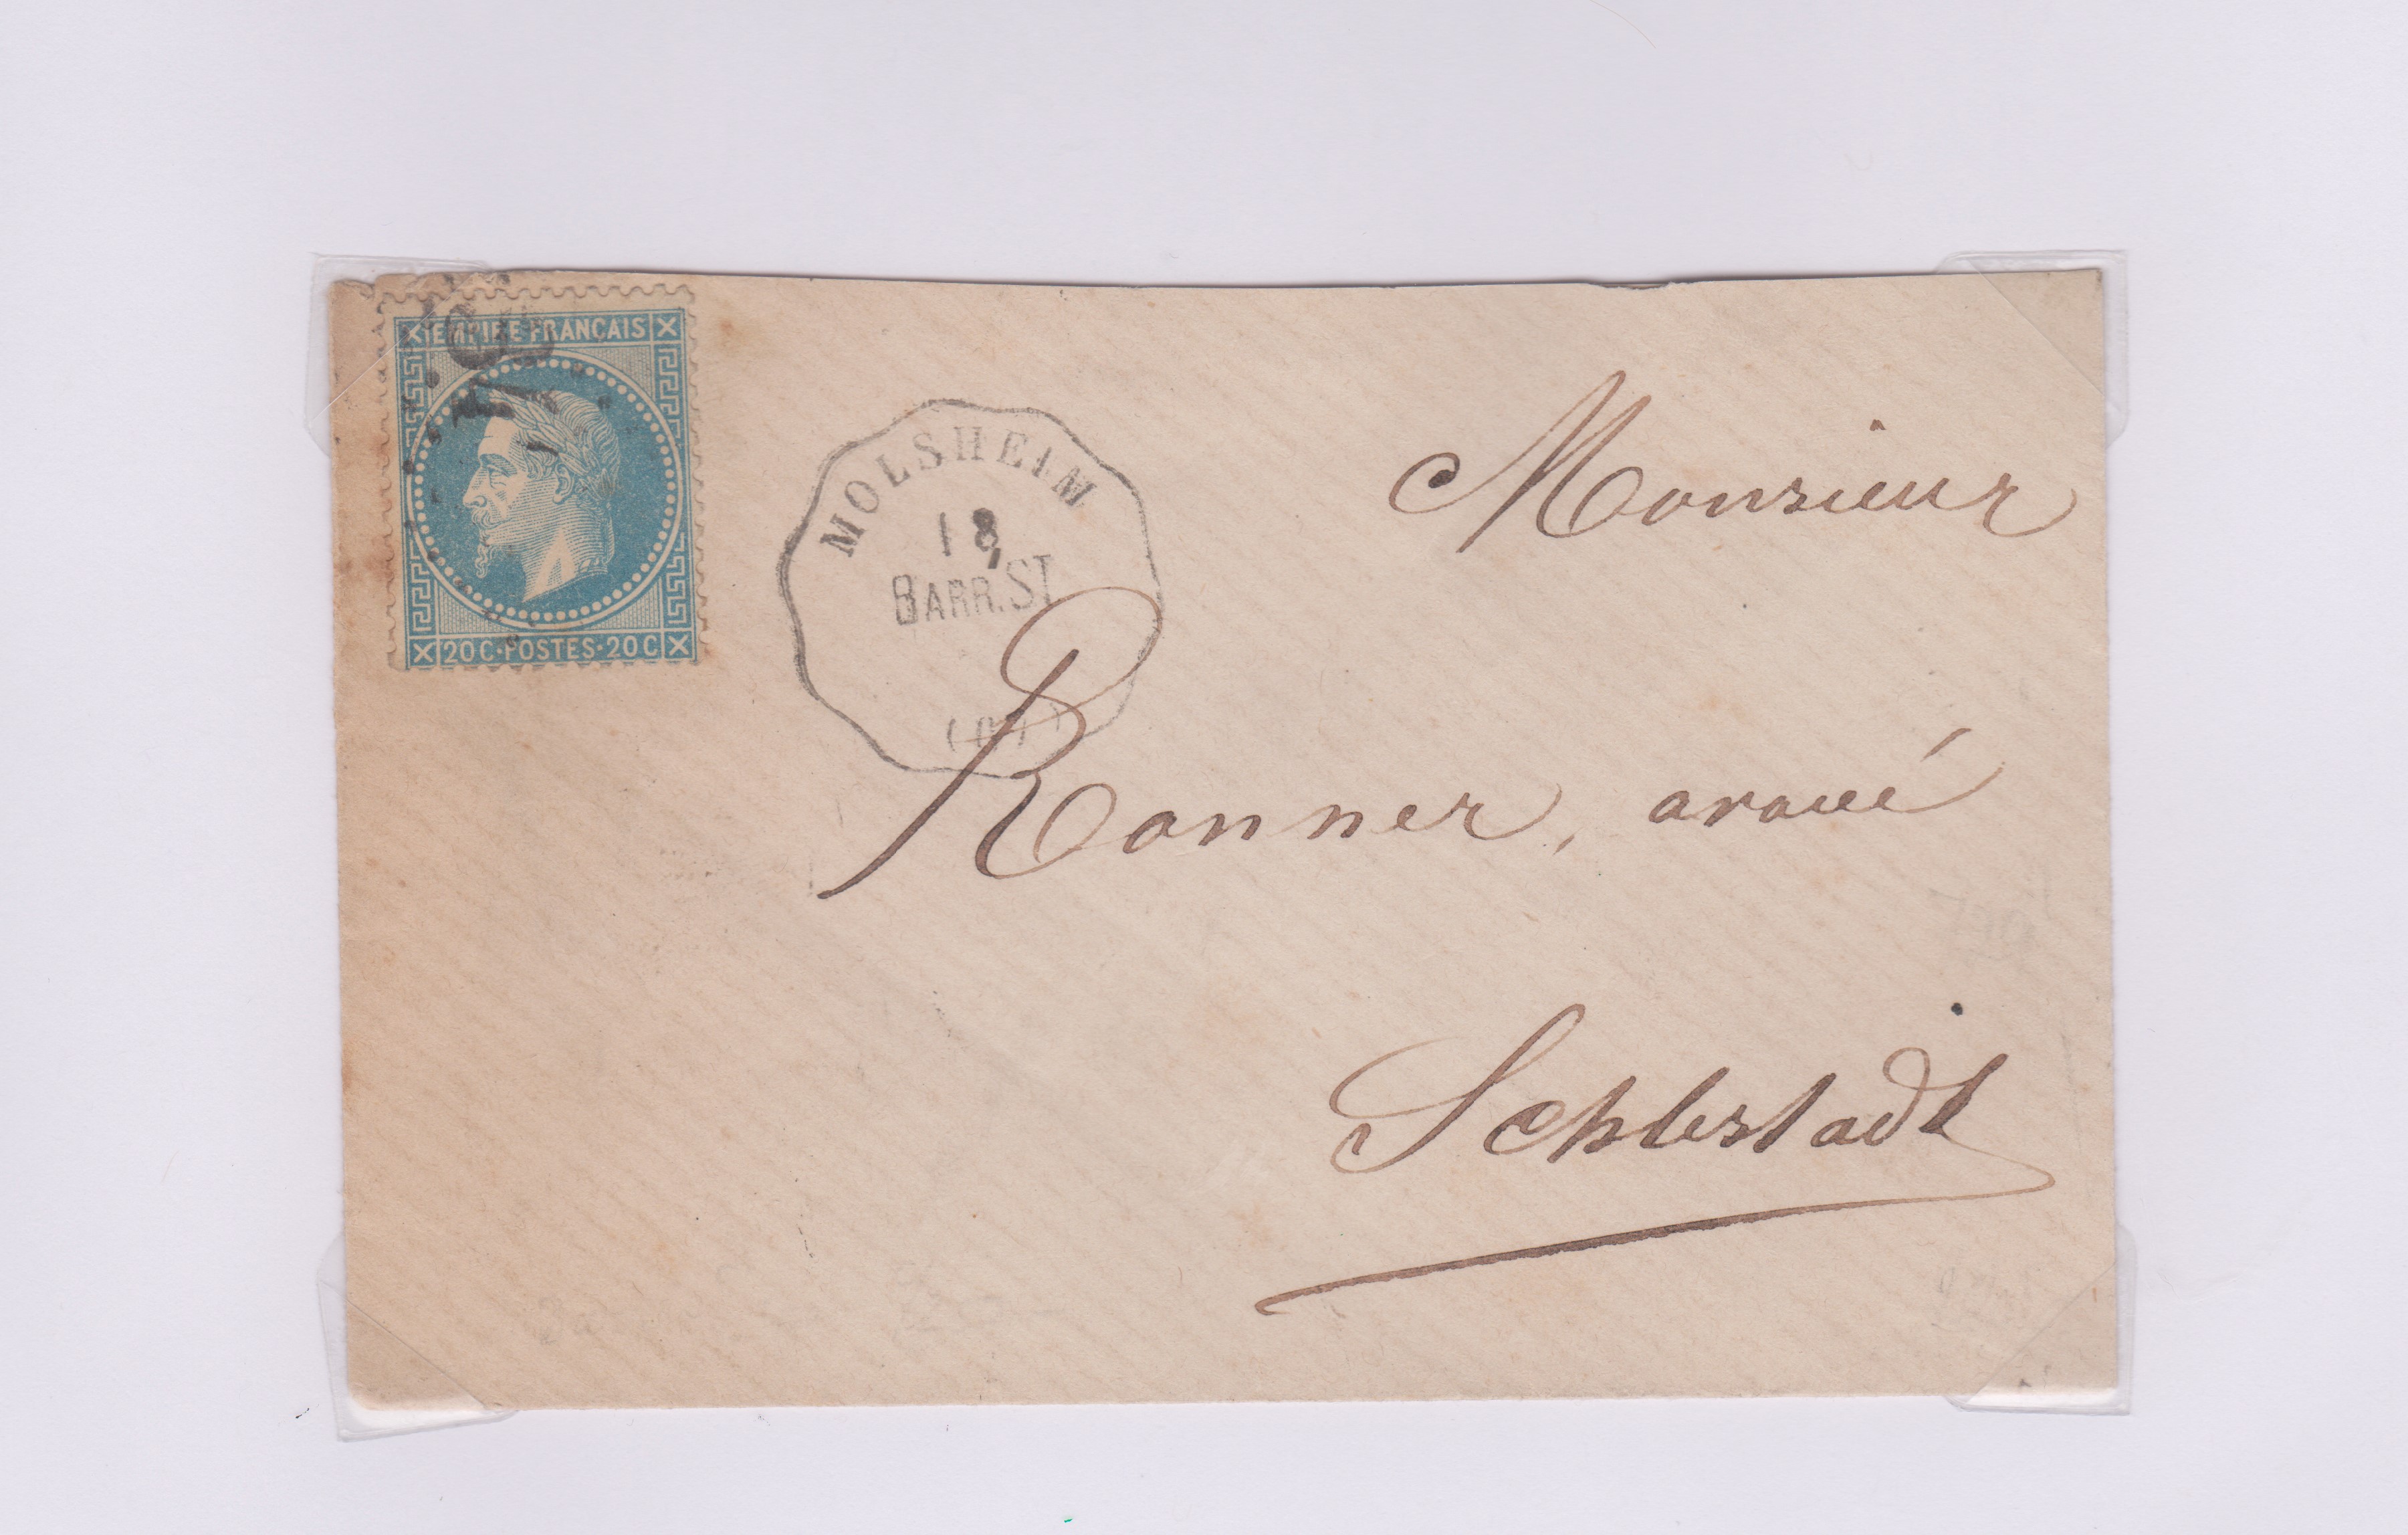 EMPIRE FRANCAIS
20C·POSTES·20C
MOLSHEIM
18
BARR.ST
(67)
Monsieur
Ronner, avoué
Schlestadt